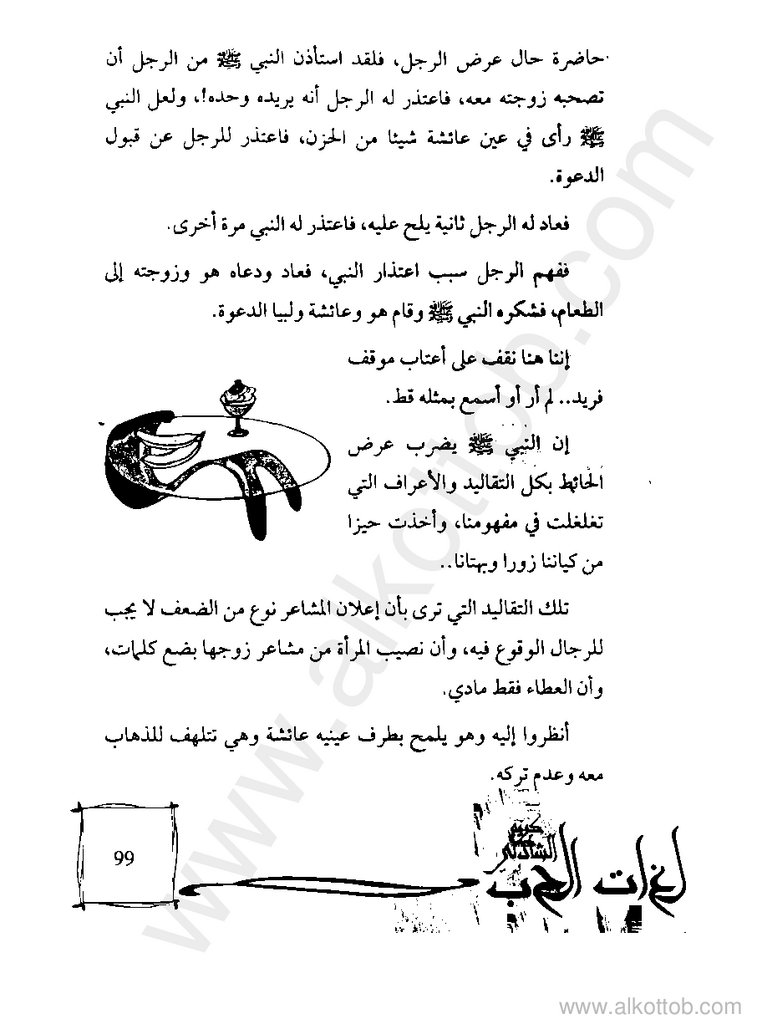 حاضرة حال عرض الرجل، فلقد استأذن النبي ﷺ من الرجل أن
تصحبه زوجته معه، فاعتذر له الرجل أنه يريده وحده!، ولعل النبي
ﷺ رأى في عين عائشة شيئا من الحزن، فاعتذر للرجل عن قبول
الدعوة.
فعاد له الرجل ثانية يلح عليه، فاعتذر له النبي مرة أخرى.
ففهم الرجل سبب اعتذار النبي، فعاد ودعاه هو وزوجته إلى
الطعام، فشكره النبي ﷺ وقام هو وعائشة ولبيا الدعوة.
إننا هنا نقف على أعتاب موقف
فريد.. لم أر أو أسمع بمثله قط.
إن النبي ﷺ يضرب عرض
الحائط بكل التقاليد والأعراف التي
تغلغلت في مفهومنا، وأخذت حيزا
من كياننا زورا وبهتانا..
تلك التقاليد التي ترى بأن إعلان المشاعر نوع من الضعف لا يجب
للرجال الوقوع فيه، وأن نصيب المرأة من مشاعر زوجها بضع كلمات،
وأن العطاء فقط مادي.
أنظروا إليه وهو يلمح بطرف عينيه عائشة وهي تتلهف للذهاب
معه وعدم تركه.
99
كريم
الشاذلي
لغات الحب
www.alkottob.com
www.alkottob.com